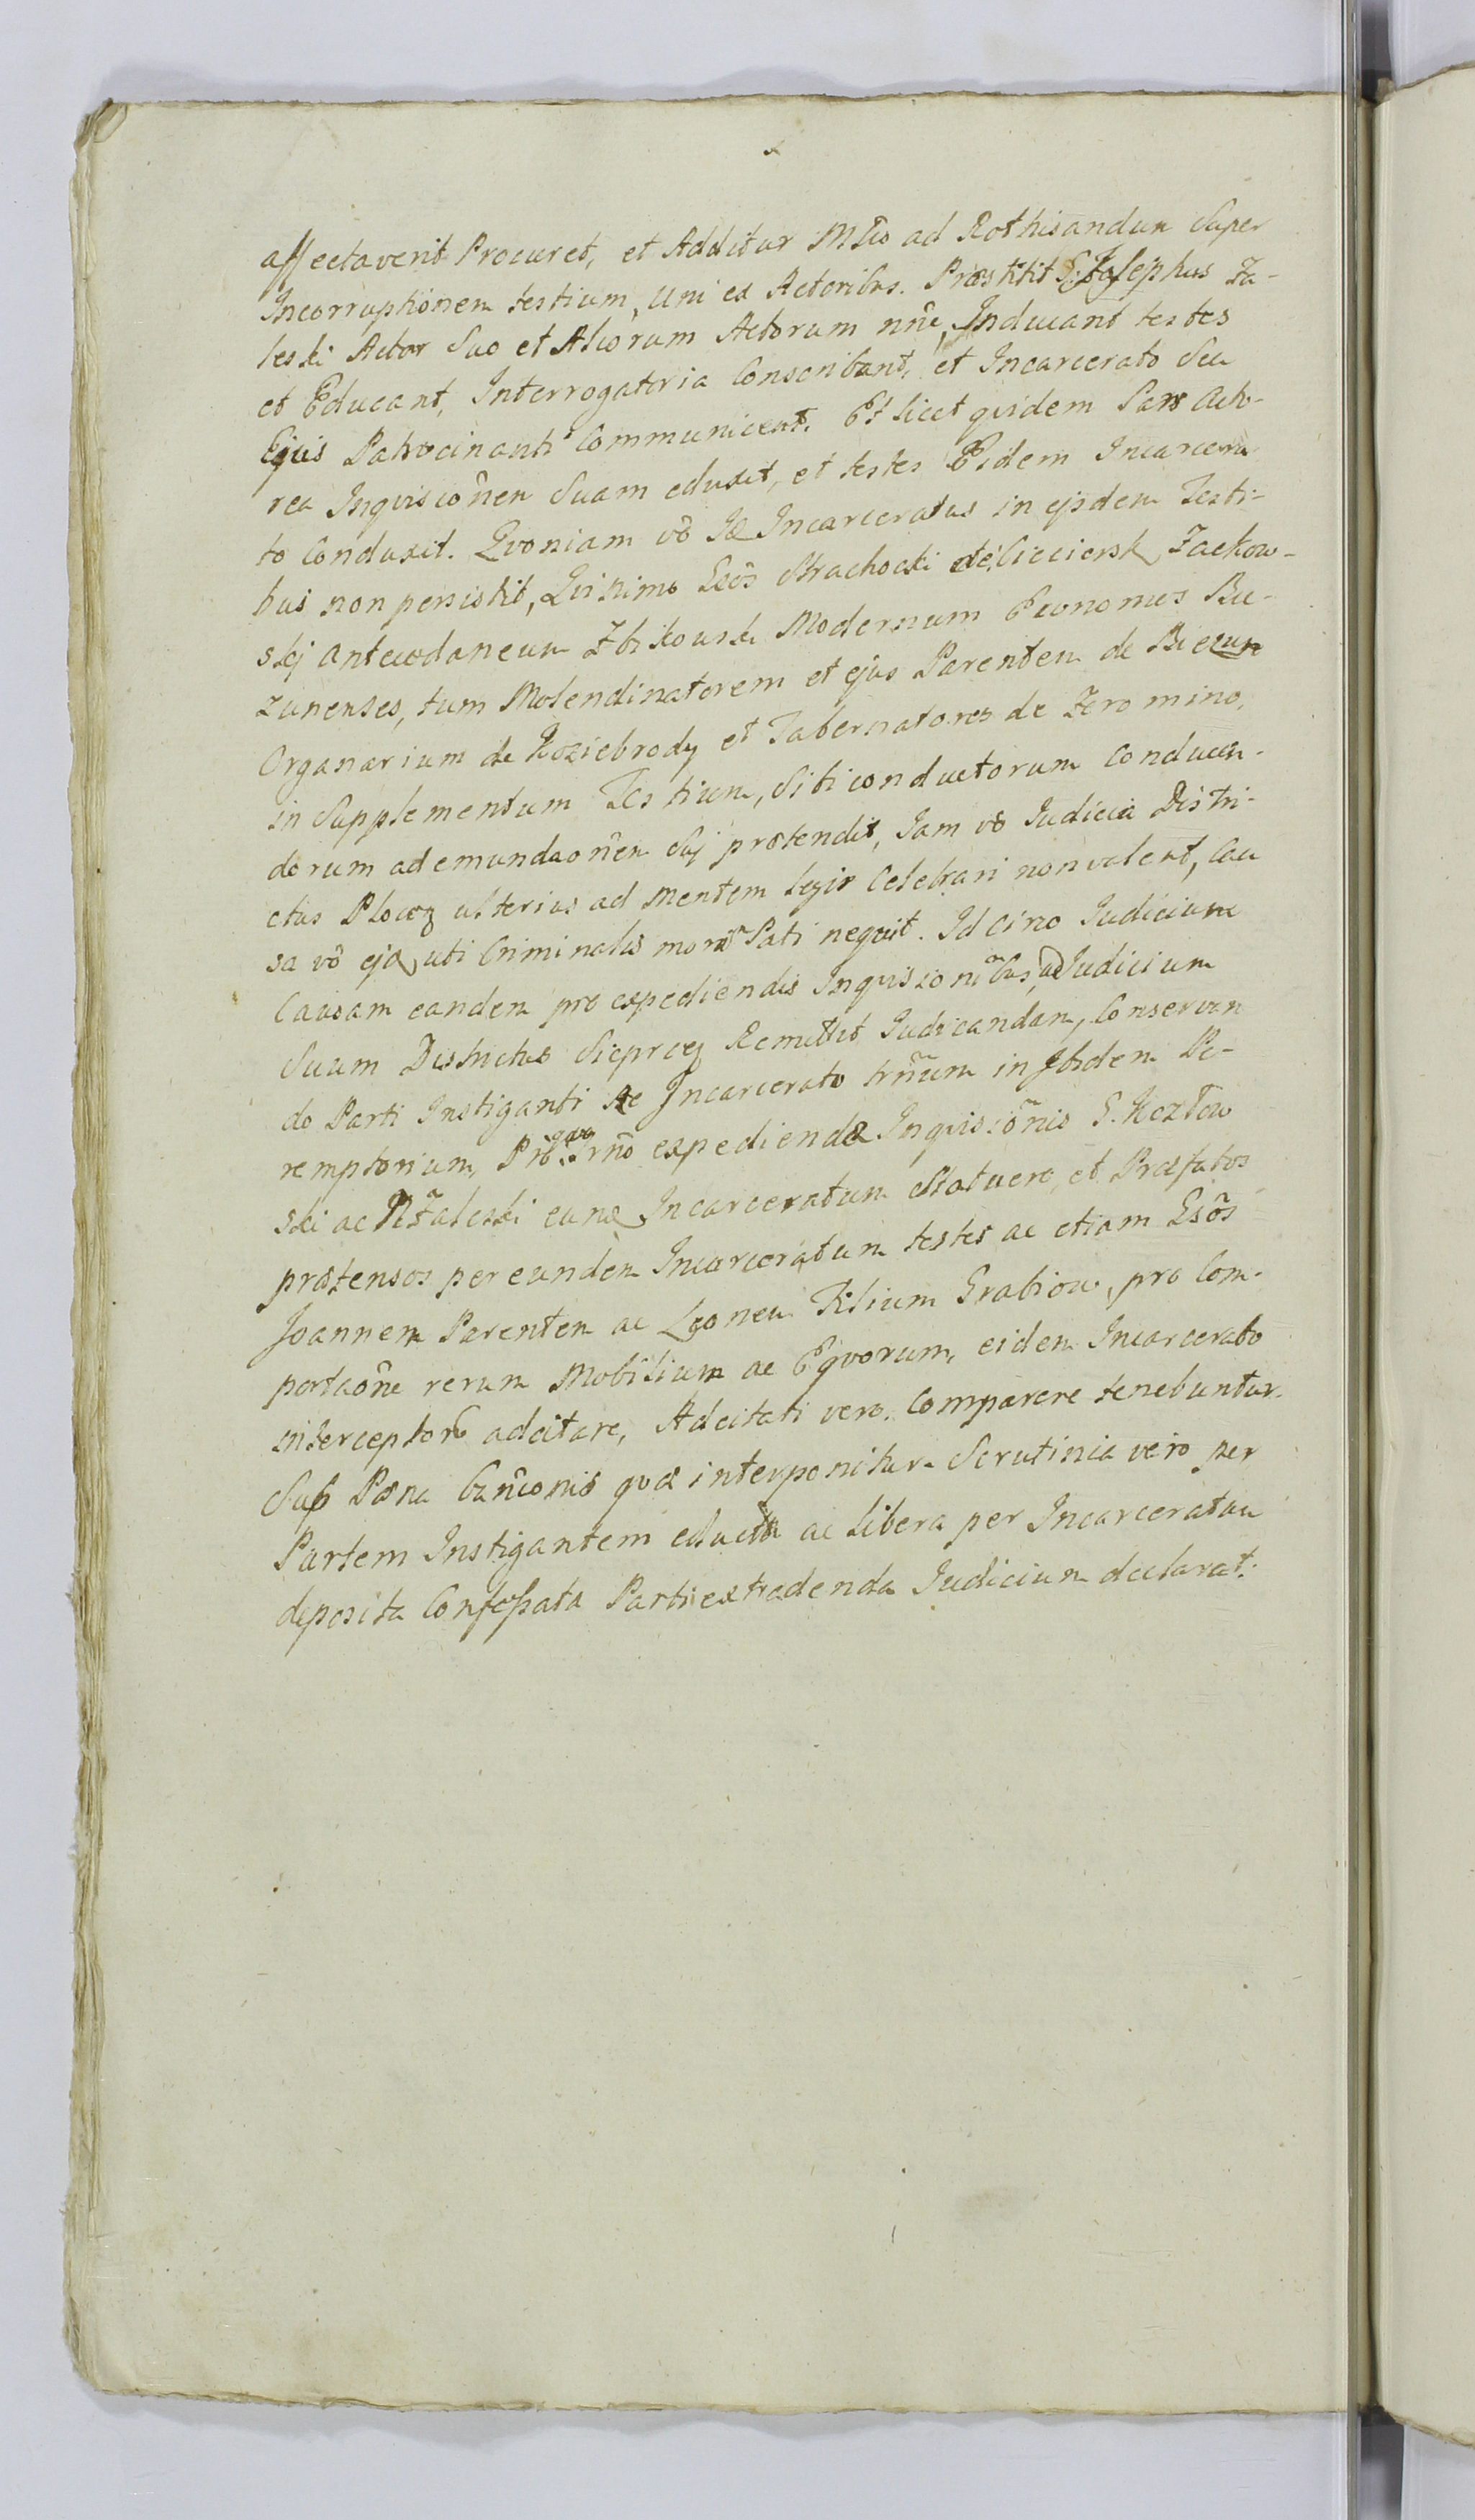 affectaverit Procuret, et Additur Mtis ad Rothisandum Super
Incorruptionem testium, Uni ex Actoribus. Præstitit G. Josephus Za-
leski Actor Suo et Aliorum Actorum nñe, Inducant testes
et Educant, Interrogatoria Conscribant, et Incarcerato Seu
Ejus Patrocinanti Communicent. Et licet quidem Pars Acto-
rea Inquisicõnem Suam eduxit, et testes Eidem Incarcera
to Conduxit. Qvoniam võ Incarceratus in ejsdem Testi-
bus non persistit, Qvinimo Strachocki Zackow-
skj antecedaneum Zbikowski Modernum Economos Bie-
zunenses, tum Molendinatorem et ejus Parentem de Biezun
Organarium de Koziebrody et Tabernatores de Zeromino,
in Supplementum Testium, Sibi conductorum Conducen-
dorum ad emundaoñem Suj prætendit, Jam võ Judicia Distri-
ctus Plocen ulterius ad mentem legis Celebrari non valent, Cau
sa võ uti Criminalis moras Pati neqvit. Id circo Judicium
Causam eandem pro expediendis Inquisionibus, ad Judicium
Suum Districtus Sieprcen Remittit Judicandam, Conservan
do Parti Instiganti Ac Incarcerato trñum in Ibidem Pe-
remptorium, Pro qvo Trño expediendæ Inquisiõnis G. Kozłow
ski ac Zaleski eundem Incarceratum Statuere, et Præfatos
prætensos per eundem Incarceratum testes ac etiam
Joannem Parentem ac Leonem Filium Grabiow, pro Com-
portaõne rerum Mobilium ac Eqvorum, eidem Incarcerato
interceptorũ adcitare, Adcitati vero Comparere tenebuntur
Sub Pæna Banñconis qvæ interponitur. Scrutinia vero per
Partem Instigantem educta ac libera per Incarceratum
deposita Confessata Parti extradenda Judicium declarat.